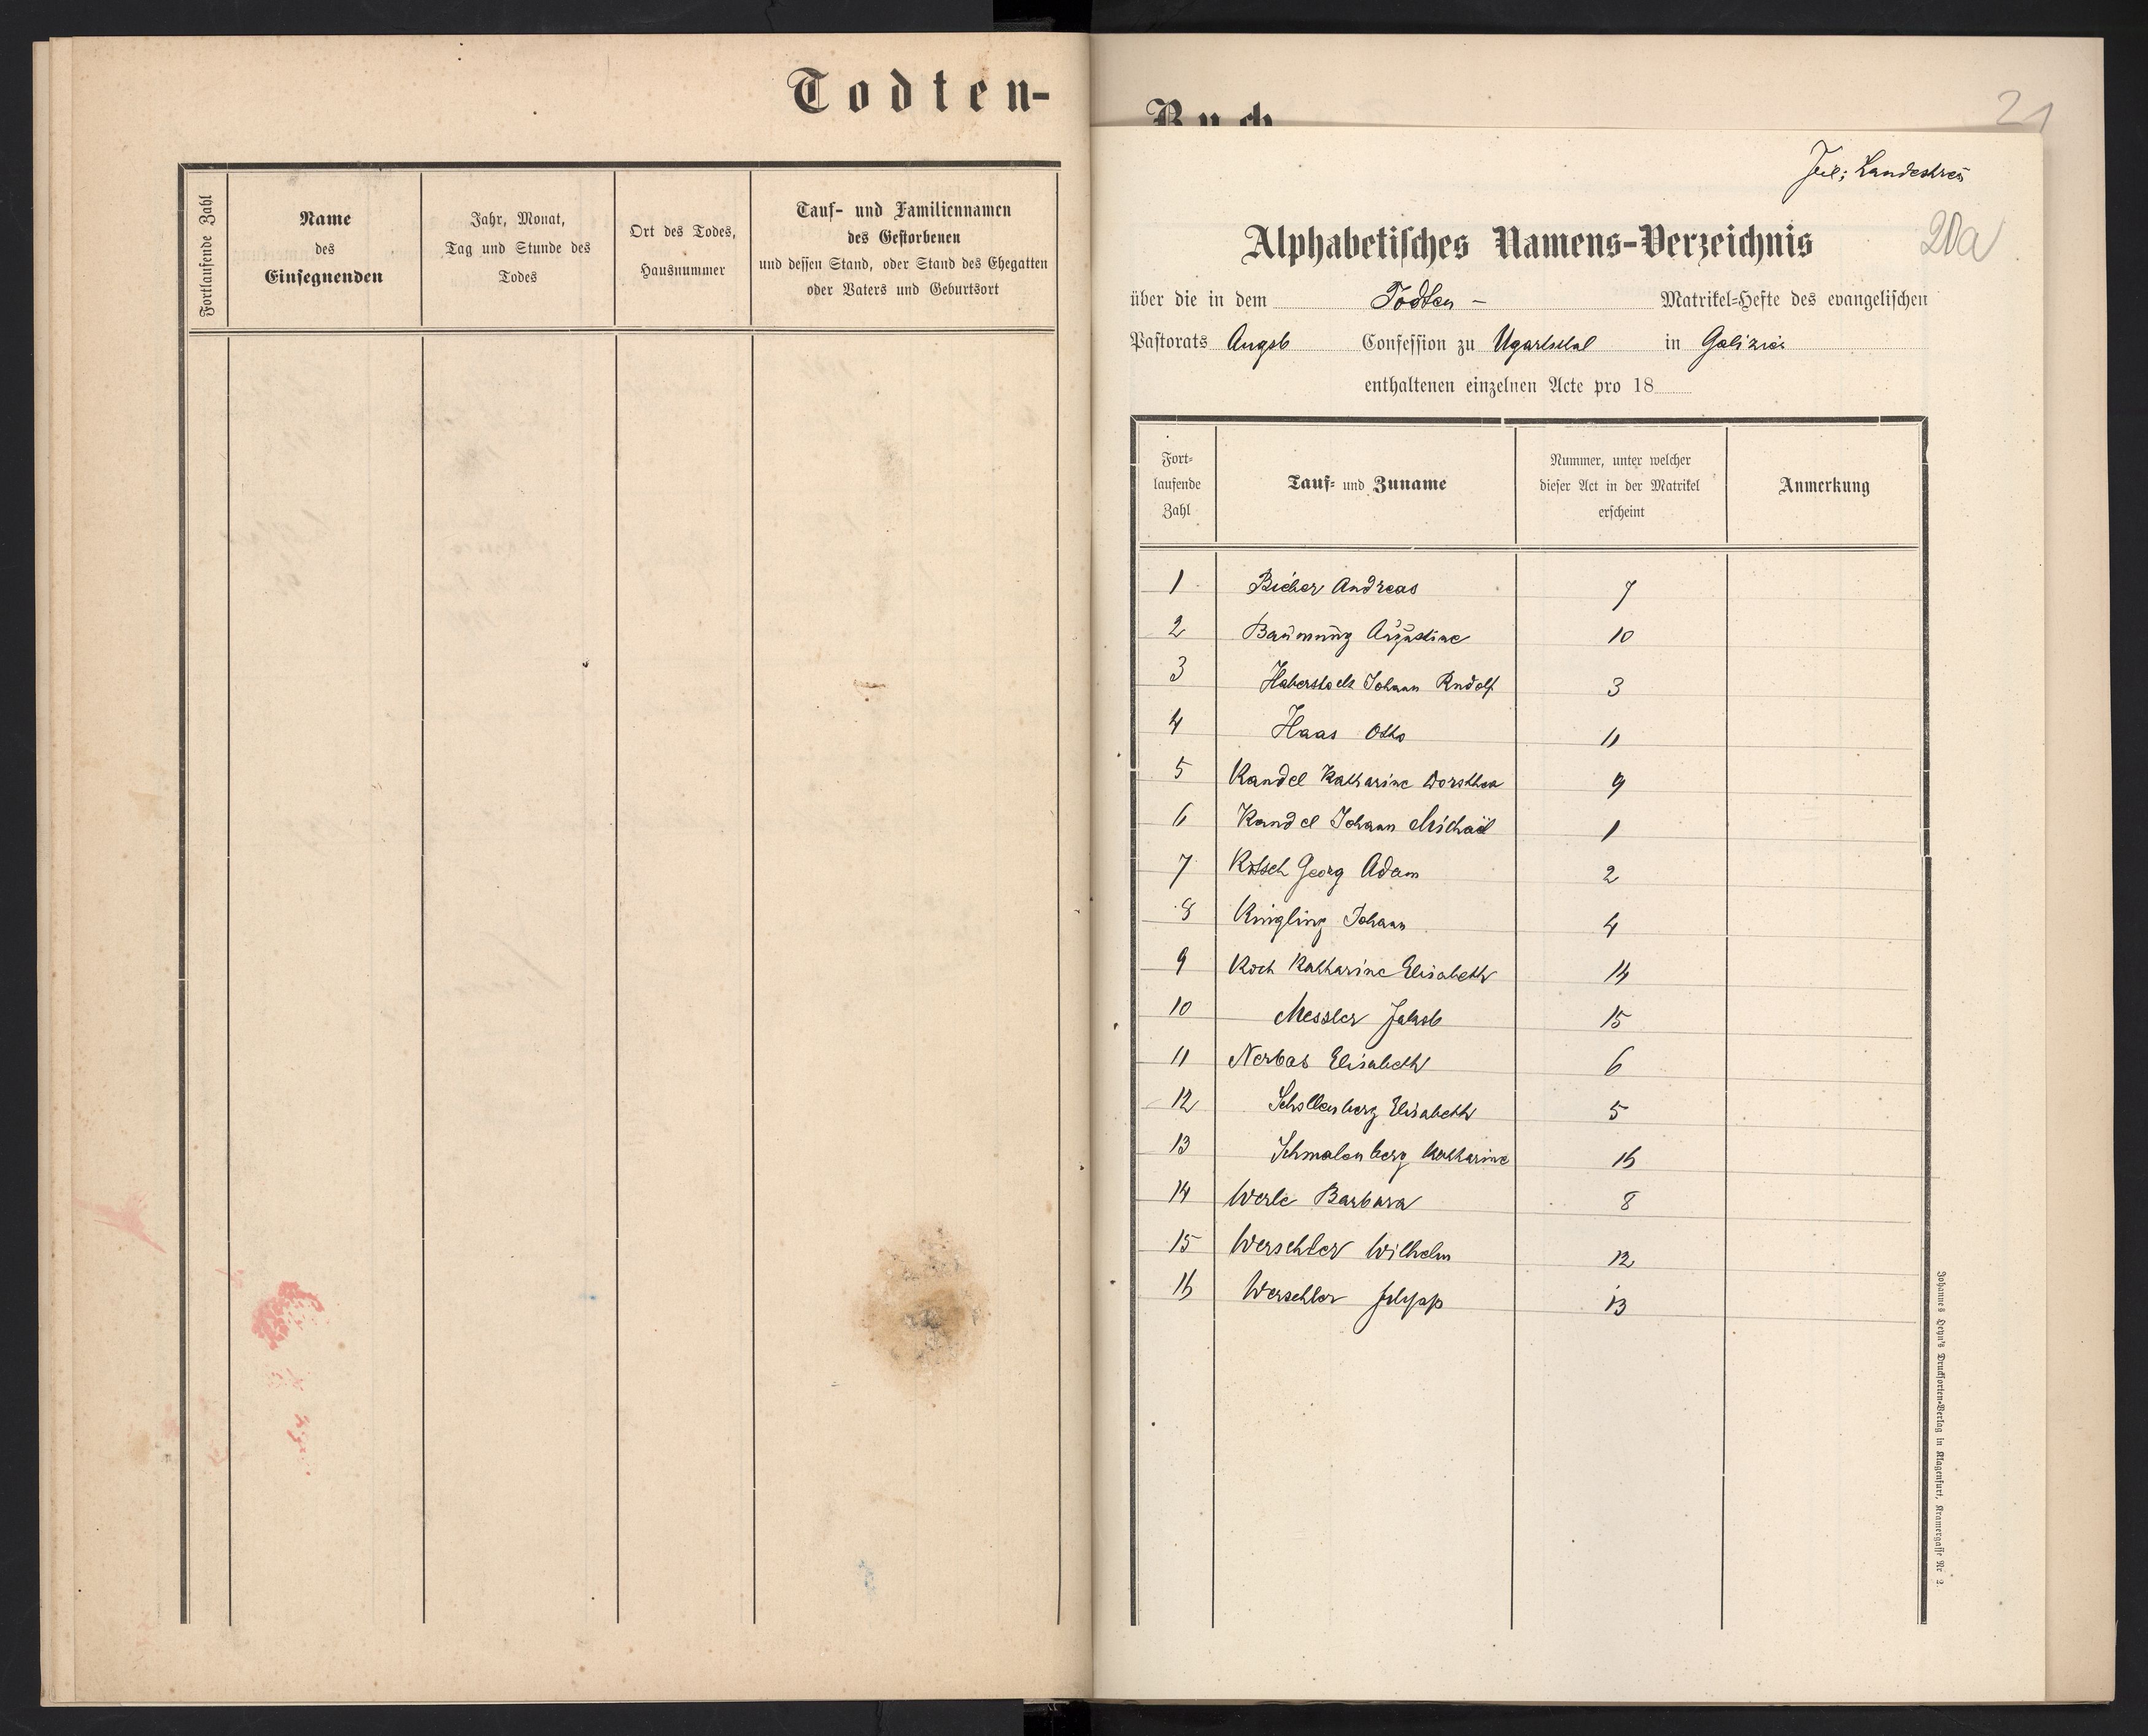 Todten-
Fortlaufende Zahl
Name
des
Einsegnenden
Jahr, Monat,
Tag und Stunde des
Todes
Ort des Todes,
Hausnummer
Tauf- und Familiennamen
des Gestorbenen
und dessen Stand, oder Stand des Ehegatten
oder Vaters und Geburtsort
Buch
21
Landestreu
20a
Alphabetisches Namens-Verzeichnis
über die in dem Todten- Matrikel-Hefte des evangelischen
Pastorats Augsb Confession zu Ugartsthal in Galizien
enthaltenen einzelnen Acte pro 18
Fort-
laufende
Zahl
Tauf- und Zuname
Nummer, unter welcher
dieser Act in der Matrikel
erscheint
Anmerkung
1 Bicher Andreas 7
2 Baumung Augustine 10
3 Haberstock Johann Rudolf 3
4 Haas Otto 11
5 Kandel Katharine Dorothea 9
6 Kandel Johann Michael 1
7 Kotsch Georg Adam 2
8 Kingling Johann 4
9 Koch Katharine Elisabeth 14
10 Messler Jakob 15
11 Nerbas Elisabeth 6
12 Schollenberg Elisabeth 5
13 Schmalenberg Katharine 16
14 Werle Barbara 8
15 Werschler Wilhelm 12
16 Werschler 13
Johannes Heyn's Drucksorten-Verlag in Klagenfurt, Kramergasse Nr 2.